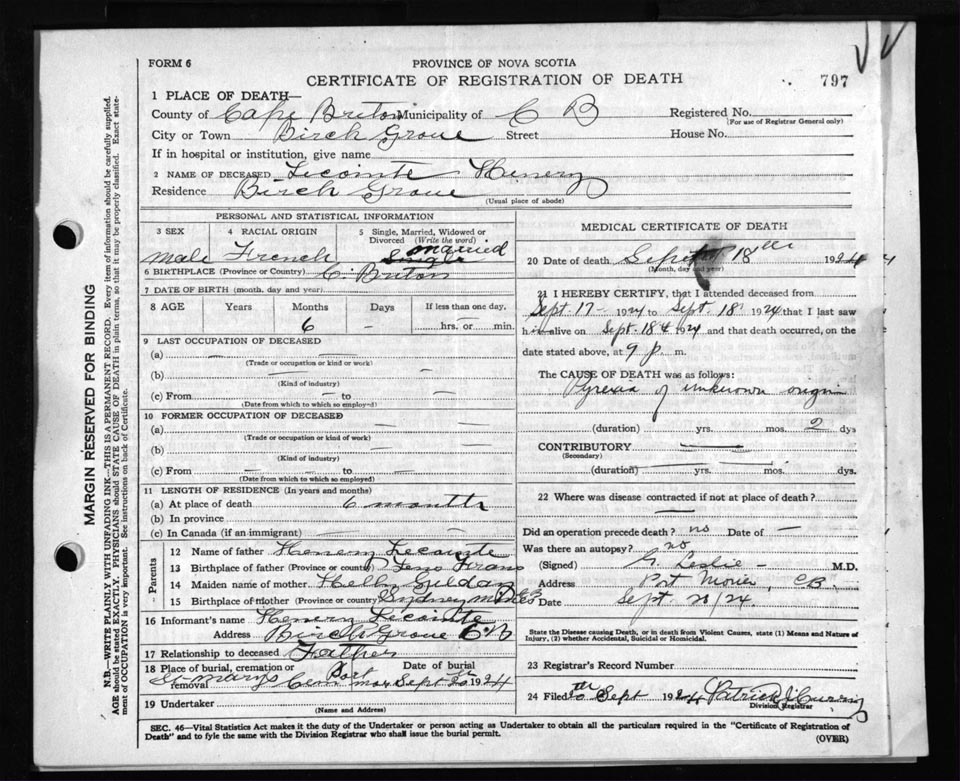 FORM 6
PROVINCE OF NOVA SCOTIA
CERTIFICATE OF REGISTRATION OF DEATH
797
1 PLACE OF DEATH—
County of Cape Briton Municipality of C B Registered No.
(For use of Registrar General only)
City or Town Birch Grove Street House No.
If in hospital or institution, give name
2 NAME OF DECEASED Lecointe Henery
Residence Birch Grove
(Usual place of abode)
MARGIN RESERVED FOR BINDING
N.B.—WRITE PLAINLY WITH UNFADING INK—THIS IS A PERMANENT RECORD. Every item of information should be carefully supplied.
AGE should be stated EXACTLY. PHYSICIANS should STATE CAUSE OF DEATH in plain terms, so that it may be properly classified. Exact state-
ment of OCCUPATION is very important. See instructions on back of Certificate.
PERSONAL AND STATISTICAL INFORMATION
3 SEX 4 RACIAL ORIGIN 5 Single, Married, Widowed or Divorced (Write the word)
male French married Single
6 BIRTHPLACE (Province or Country) C. Briton
7 DATE OF BIRTH (month, day and year)
8 AGE Years Months Days If less than one day,
6 – hrs. or min.
9 LAST OCCUPATION OF DECEASED
(a)
(Trade or occupation or kind of work)
(b)
(Kind of industry)
(c) From to
(Date from which to which so employed)
10 FORMER OCCUPATION OF DECEASED
(a)
(Trade or occupation or kind of work)
(b)
(Kind of industry)
(c) From to
(Date from which to which so employed)
11 LENGTH OF RESIDENCE (In years and months)
(a) At place of death 6 months
(b) In province
(c) In Canada (if an immigrant)
Parents
12 Name of father Henery Lecointe
13 Birthplace of father (Province or country)
14 Maiden name of mother
15 Birthplace of mother (Province or country) Sydney mines
16 Informant's name Henery Lecointe
Address Birch Grove C B
17 Relationship to deceased Father
18 Place of burial, cremation or removal Date of burial
St marys Cem Port mor Sept 20 1924
19 Undertaker
(Name and Address)
MEDICAL CERTIFICATE OF DEATH
20 Date of death Sept 18th 1924
(Month, day and year)
21 I HEREBY CERTIFY, that I attended deceased from
Sept. 17 – 1924 to Sept. 18 1924 that I last saw
him alive on Sept. 18th 1924 and that death occurred, on the
date stated above, at 9 p. m.
The CAUSE OF DEATH was as follows:
Pyrexia of unknown origin
(duration) yrs. mos. 2 dys
CONTRIBUTORY
(Secondary)
(duration) yrs. mos. dys.
22 Where was disease contracted if not at place of death?
Did an operation precede death? no Date of –
Was there an autopsy? no
(Signed) G. Leslie – M.D.
Address Port Morien, C B.
Date Sept 20/24.
State the Disease causing Death, or in death from Violent Causes, state (1) Means and Nature of
Injury, (2) whether Accidental, Suicidal or Homicidal.
23 Registrar's Record Number
24 Filed 20th Sept 1924 Patrick J Currie
Division Registrar
SEC. 46—Vital Statistics Act makes it the duty of the Undertaker or person acting as Undertaker to obtain all the particulars required in the "Certificate of Registration of
Death" and to fyle the same with the Division Registrar who shall issue the burial permit.
(OVER)